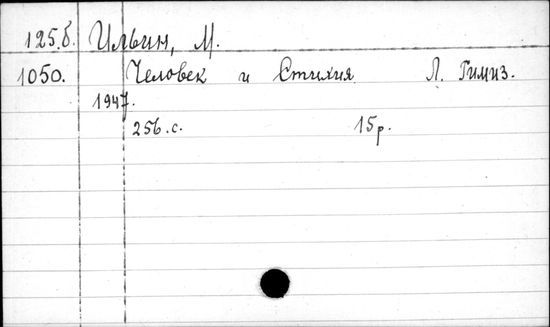 125.б. Ильин, М.
1050. Человек и Стихия Л. Гимиз.
1947.
256.с. 15р.